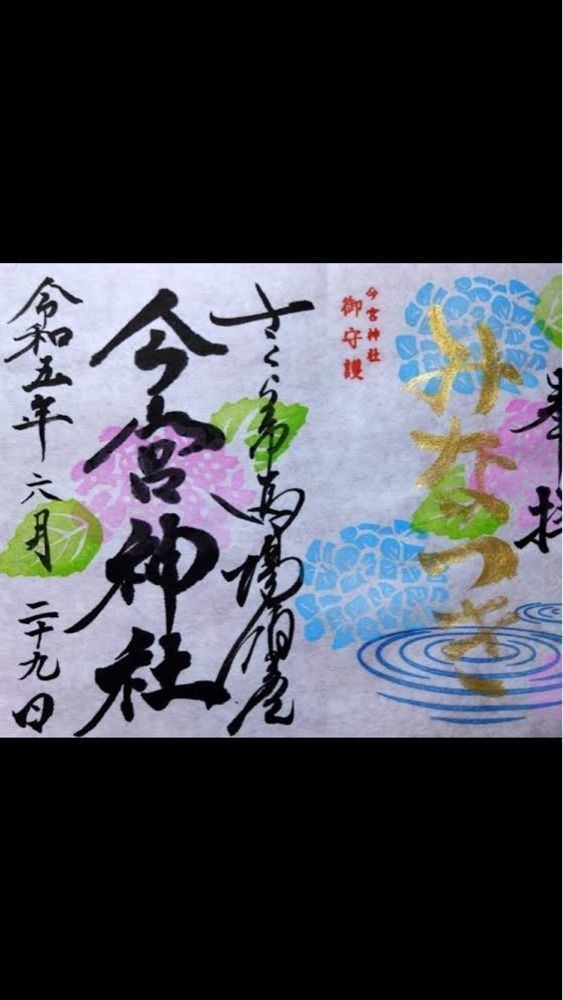 奉拝
みなつき
今宮神社
御守護
さくら市馬場鎮座
今宮神社
令和五年六月二十九日